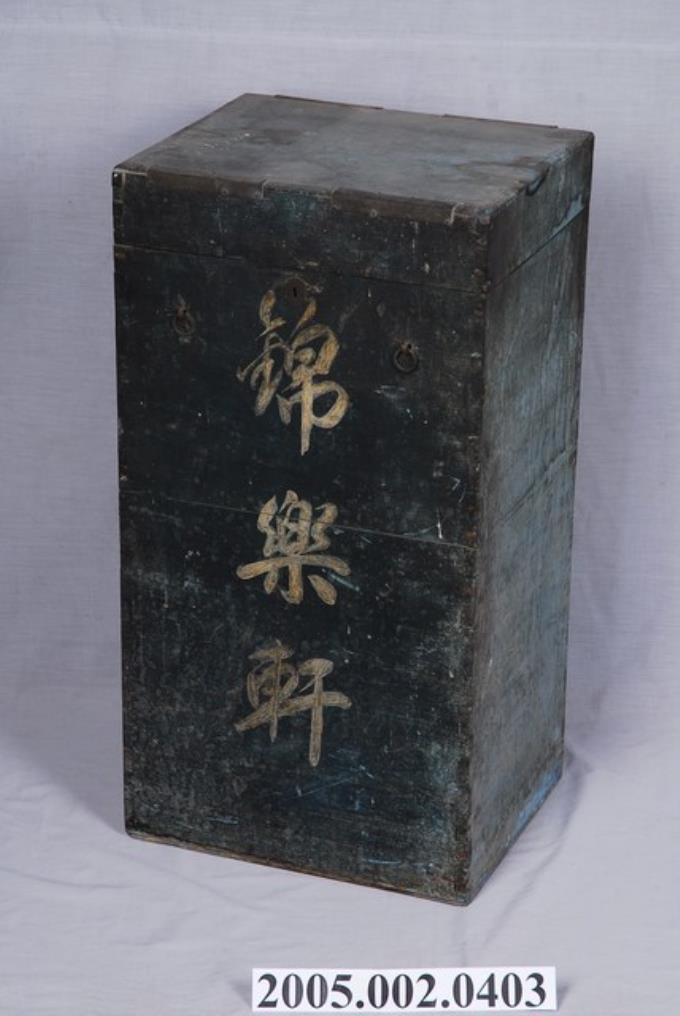 錦樂軒
2005.002.0403